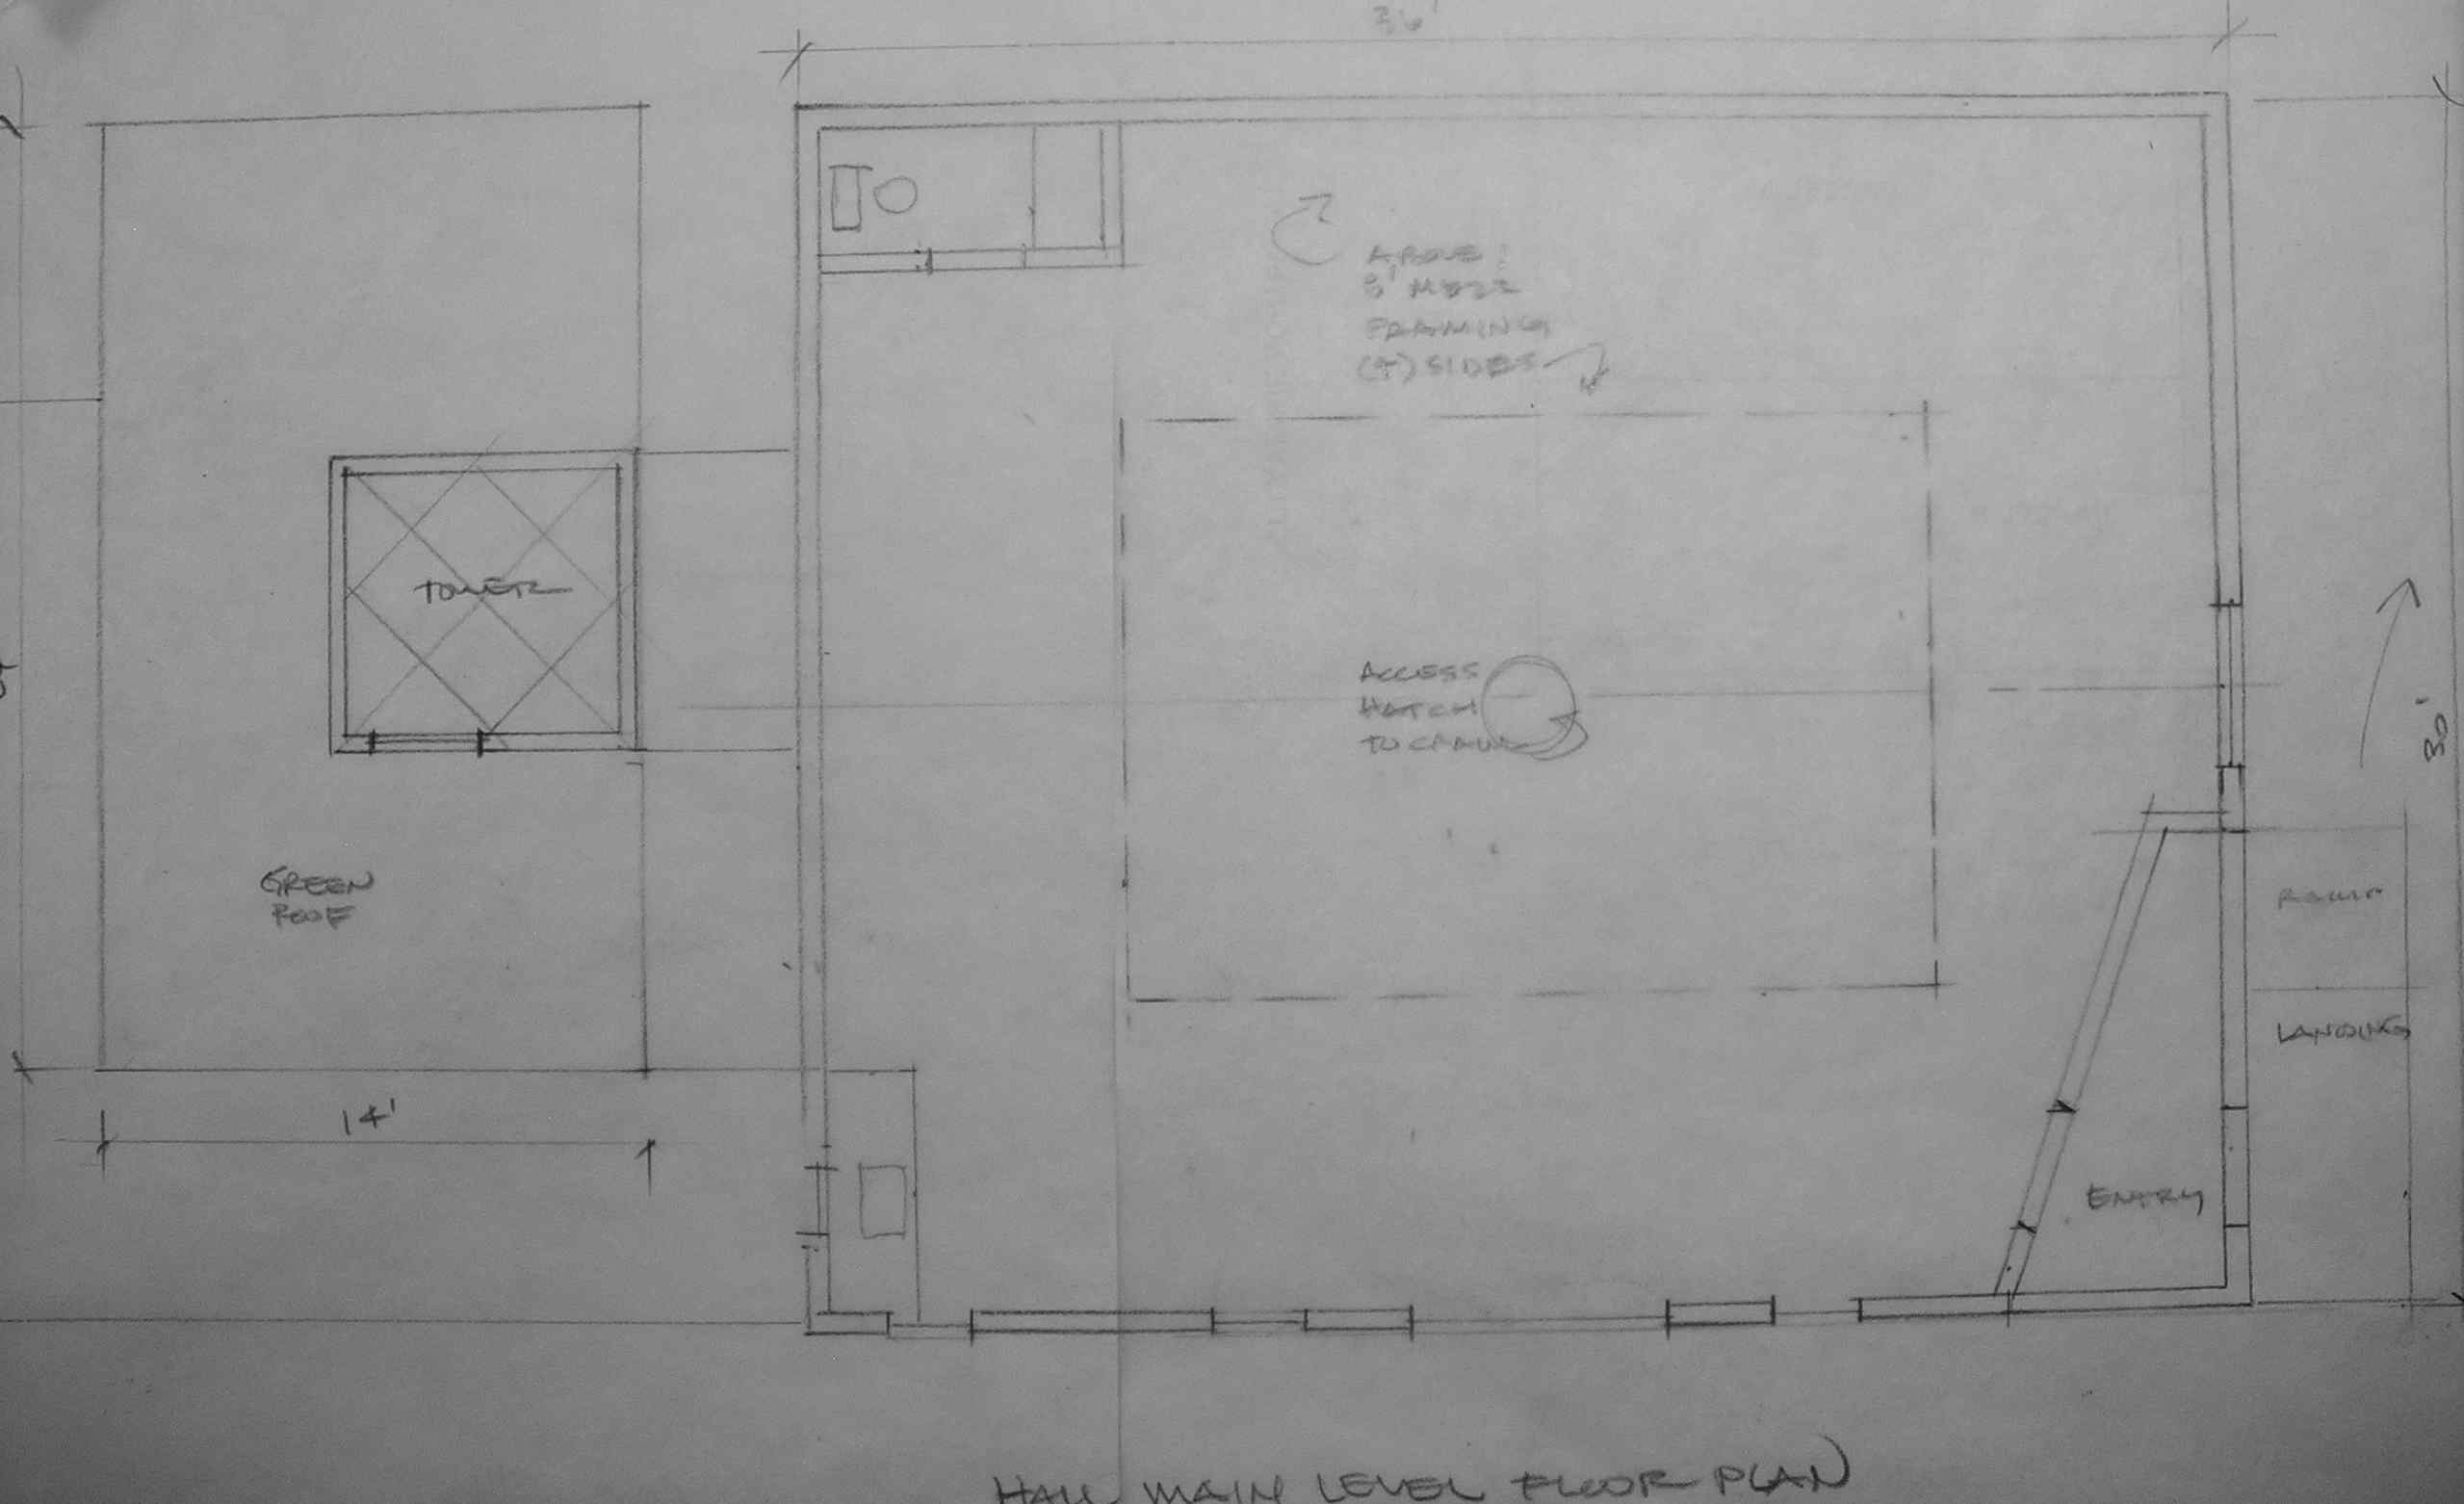 36'
ABOVE:
8' MEZZ
FRAMING
(4) SIDES
TOWER
ACCESS
HATCH
TO CRAWL
30'
GREEN
ROOF
RAMP
LANDING
14'
ENTRY
HALL MAIN LEVEL FLOOR PLAN